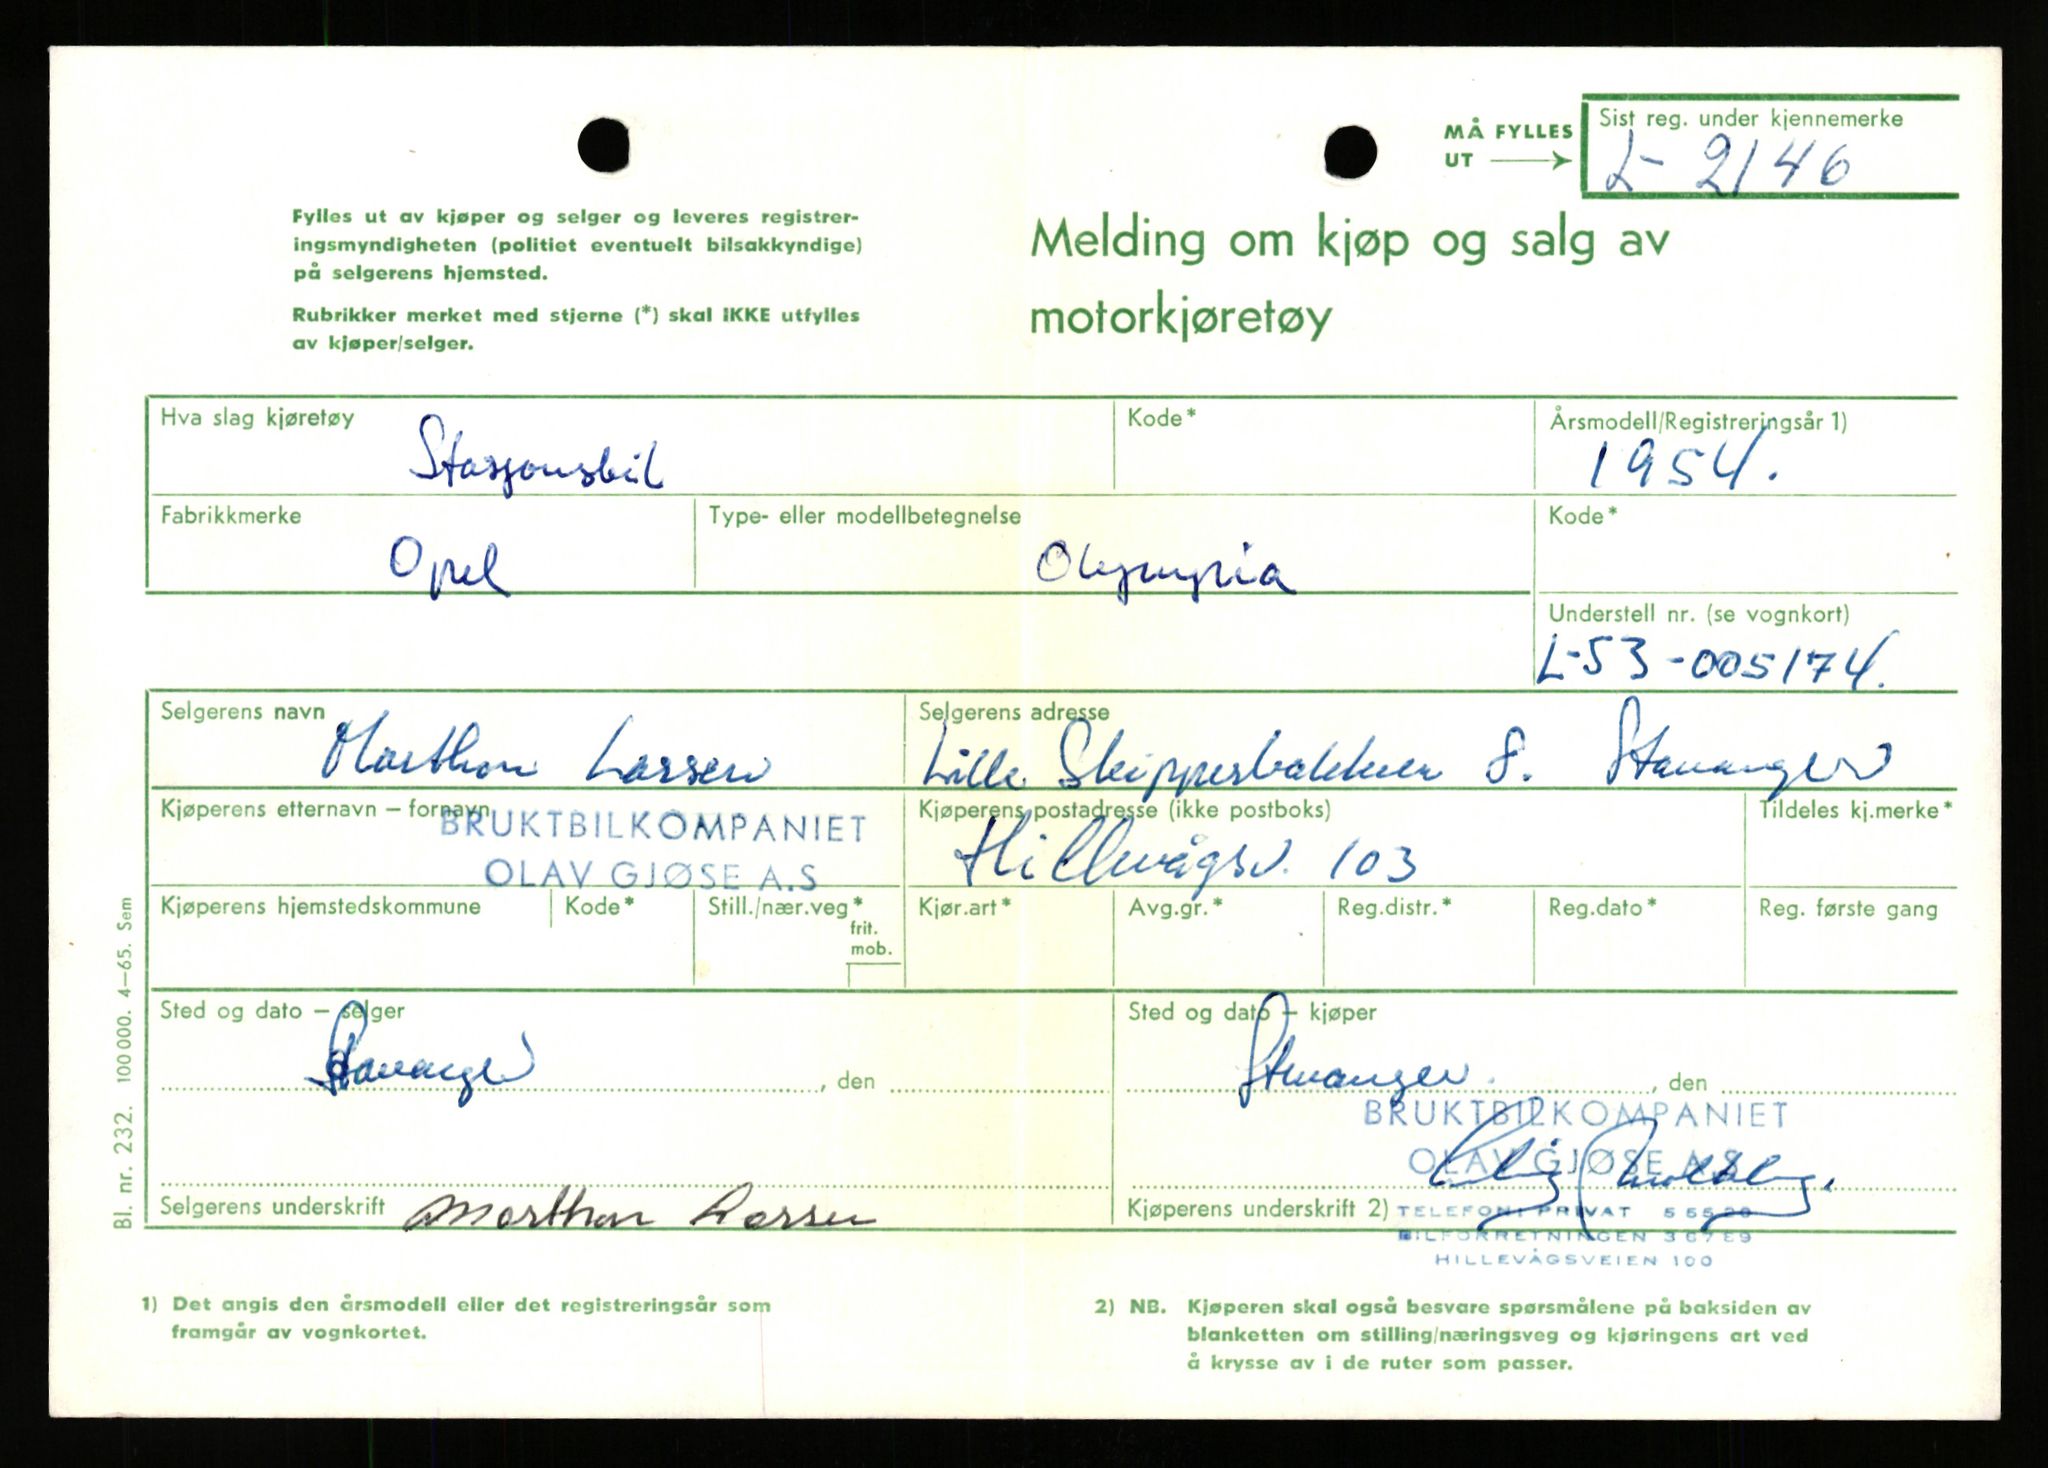 MÅ FYLLES UT
Sist reg. under kjennemerke
L- 2146
Fylles ut av kjøper og selger og leveres registrer-
ingsmyndigheten (politiet eventuelt bilsakkyndige)
på selgerens hjemsted.
Rubrikker merket med stjerne (*) skal IKKE utfylles
av kjøper/selger.
Melding om kjøp og salg av
motorkjøretøy
Hva slag kjøretøy
Stasjonsbil
Kode*
Årsmodell/Registreringsår 1)
1954.
Fabrikkmerke
Opel
Type- eller modellbetegnelse
Olympia
Kode*
Understell nr. (se vognkort)
L-53-005174.
Selgerens navn
Marthon Larsen
Selgerens adresse
Lille Skippersbakken 8. Stavanger
Kjøperens etternavn – fornavn
BRUKTBILKOMPANIET
OLAV GJØSE A.S
Kjøperens postadresse (ikke postboks)
Hillevågsv. 103
Tildeles kj.merke*
Kjøperens hjemstedskommune
Kode*
Still./nær.veg*
frit.
mob.
Kjør.art*
Avg.gr.*
Reg.distr.*
Reg.dato*
Reg. første gang
Sted og dato – selger
Stavanger , den
Sted og dato – kjøper
Stavanger. , den
BRUKTBILKOMPANIET
OLAV GJØSE A.S
Selgerens underskrift
Marthon Larsen
Kjøperens underskrift 2)
TELEFON: PRIVAT
BILFORRETNINGEN 36789
HILLEVÅGSVEIEN 100
Bl. nr. 232. 100 000. 4–65. Sem
1) Det angis den årsmodell eller det registreringsår som
framgår av vognkortet.
2) NB. Kjøperen skal også besvare spørsmålene på baksiden av
blanketten om stilling/næringsveg og kjøringens art ved
å krysse av i de ruter som passer.